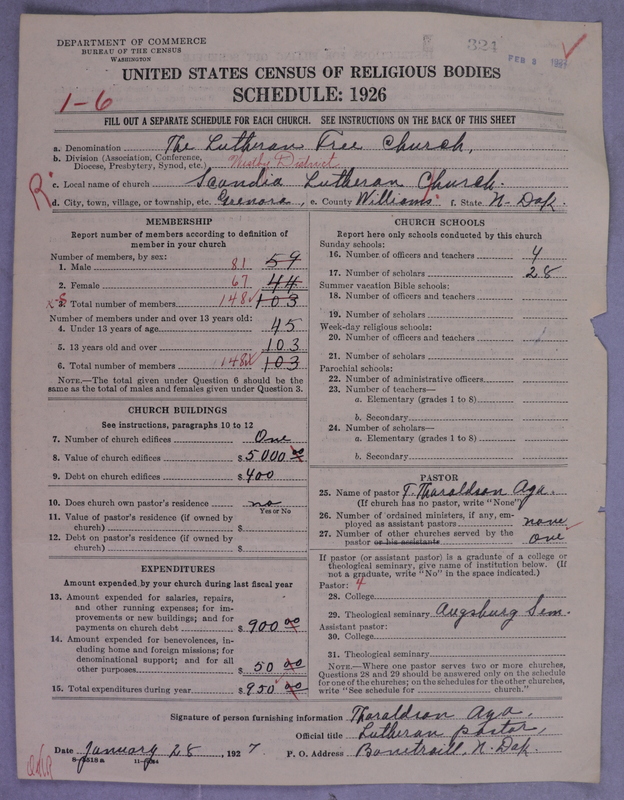 DEPARTMENT OF COMMERCE
BUREAU OF THE CENSUS
WASHINGTON
324
FEB 3 1927
UNITED STATES CENSUS OF RELIGIOUS BODIES
SCHEDULE: 1926
1-6
FILL OUT A SEPARATE SCHEDULE FOR EACH CHURCH. SEE INSTRUCTIONS ON THE BACK OF THIS SHEET
a. Denomination The Lutheran Free Church,
b. Division (Association, Conference, Diocese, Presbytery, Synod, etc.) District
c. Local name of church Scandia Lutheran Church.
R
d. City, town, village, or township, etc. Grenora, e. County Williams f. State N-Dak.
MEMBERSHIP
Report number of members according to definition of member in your church
Number of members, by sex:
1. Male 81 59
2. Female 67 44
3. Total number of members 148 103
Number of members under and over 13 years old:
4. Under 13 years of age 45
5. 13 years old and over 103
6. Total number of members 148 103
NOTE.—The total given under Question 6 should be the same as the total of males and females given under Question 3.
CHURCH BUILDINGS
See instructions, paragraphs 10 to 12
7. Number of church edifices One
8. Value of church edifices $5000 00
9. Debt on church edifices $400
10. Does church own pastor's residence no
Yes or No
11. Value of pastor's residence (if owned by church) $
12. Debt on pastor's residence (if owned by church) $
EXPENDITURES
Amount expended by your church during last fiscal year
13. Amount expended for salaries, repairs, and other running expenses; for improvements or new buildings; and for payments on church debt $900 00
14. Amount expended for benevolences, including home and foreign missions; for denominational support; and for all other purposes $50 00
15. Total expenditures during year $950 00
CHURCH SCHOOLS
Report here only schools conducted by this church
Sunday schools:
16. Number of officers and teachers 4
17. Number of scholars 28
Summer vacation Bible schools:
18. Number of officers and teachers
19. Number of scholars
Week-day religious schools:
20. Number of officers and teachers
21. Number of scholars
Parochial schools:
22. Number of administrative officers
23. Number of teachers—
a. Elementary (grades 1 to 8)
b. Secondary
24. Number of scholars—
a. Elementary (grades 1 to 8)
b. Secondary
PASTOR
25. Name of pastor T. Tharaldson Aga.
(If church has no pastor, write "None")
26. Number of ordained ministers, if any, employed as assistant pastors none
27. Number of other churches served by the pastor or his assistants one
If pastor (or assistant pastor) is a graduate of a college or theological seminary, give name of institution below. (If not a graduate, write "No" in the space indicated.)
Pastor: 4
28. College
29. Theological seminary Augsburg Sem.
Assistant pastor:
30. College
31. Theological seminary
NOTE.—Where one pastor serves two or more churches, Questions 28 and 29 should be answered only on the schedule for one of the churches; on the schedules for the other churches, write "See schedule for church."
Signature of person furnishing information Tharaldson Aga,
Official title Lutheran pastor,
Date January 28, 1927 P. O. Address Bonetraill, N. Dak.
8-5518 a